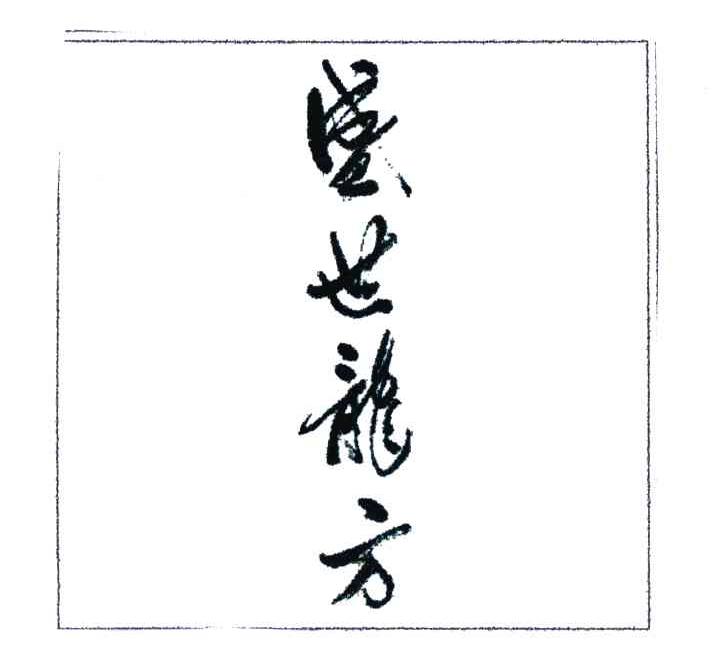 盛世龍方